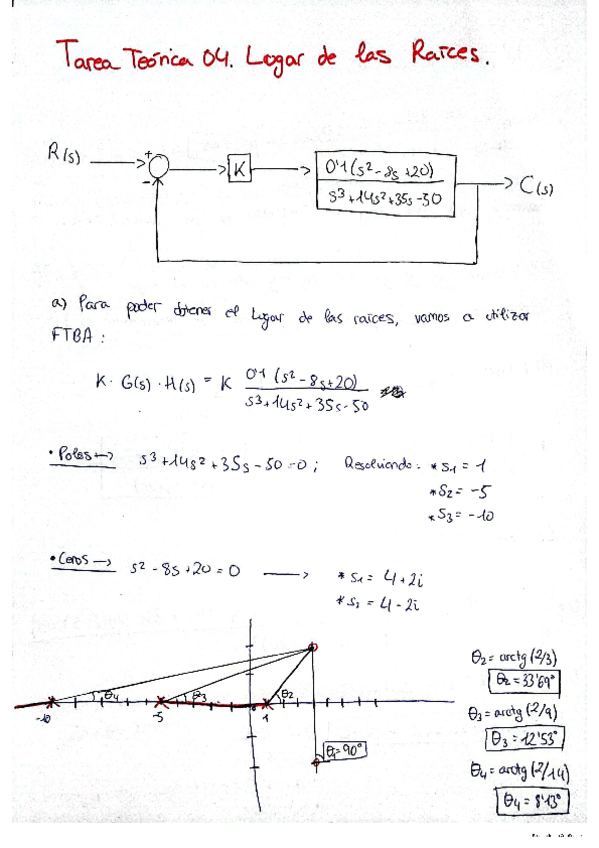 Tarea Teórica 04. Lugar de las Raíces.
R(s)
+
-
K
0'1(s²-8s+20)
s³+14s²+35s-50
C(s)
a) Para poder obtener el Lugar de las raíces, vamos a utilizar
FTBA:
K · G(s) · H(s) = K 0'1 (s²-8s+20)
s³+14s²+35s-50
• Polos → s³+14s²+35s-50=0; Resolviendo: * s₁ = 1
* s₂ = -5
* s₃ = -10
• Ceros → s²-8s+20=0 → * s₁ = 4+2i
* s₂ = 4-2i
θ₄ θ₃ θ₂
-10 -5 1
θ₁=90°
θ₂= arctg (2/3)
θ₂=33'69°
θ₃= arctg (2/9)
θ₃=12'53°
θ₄= arctg (2/14)
θ₄= 8'13°